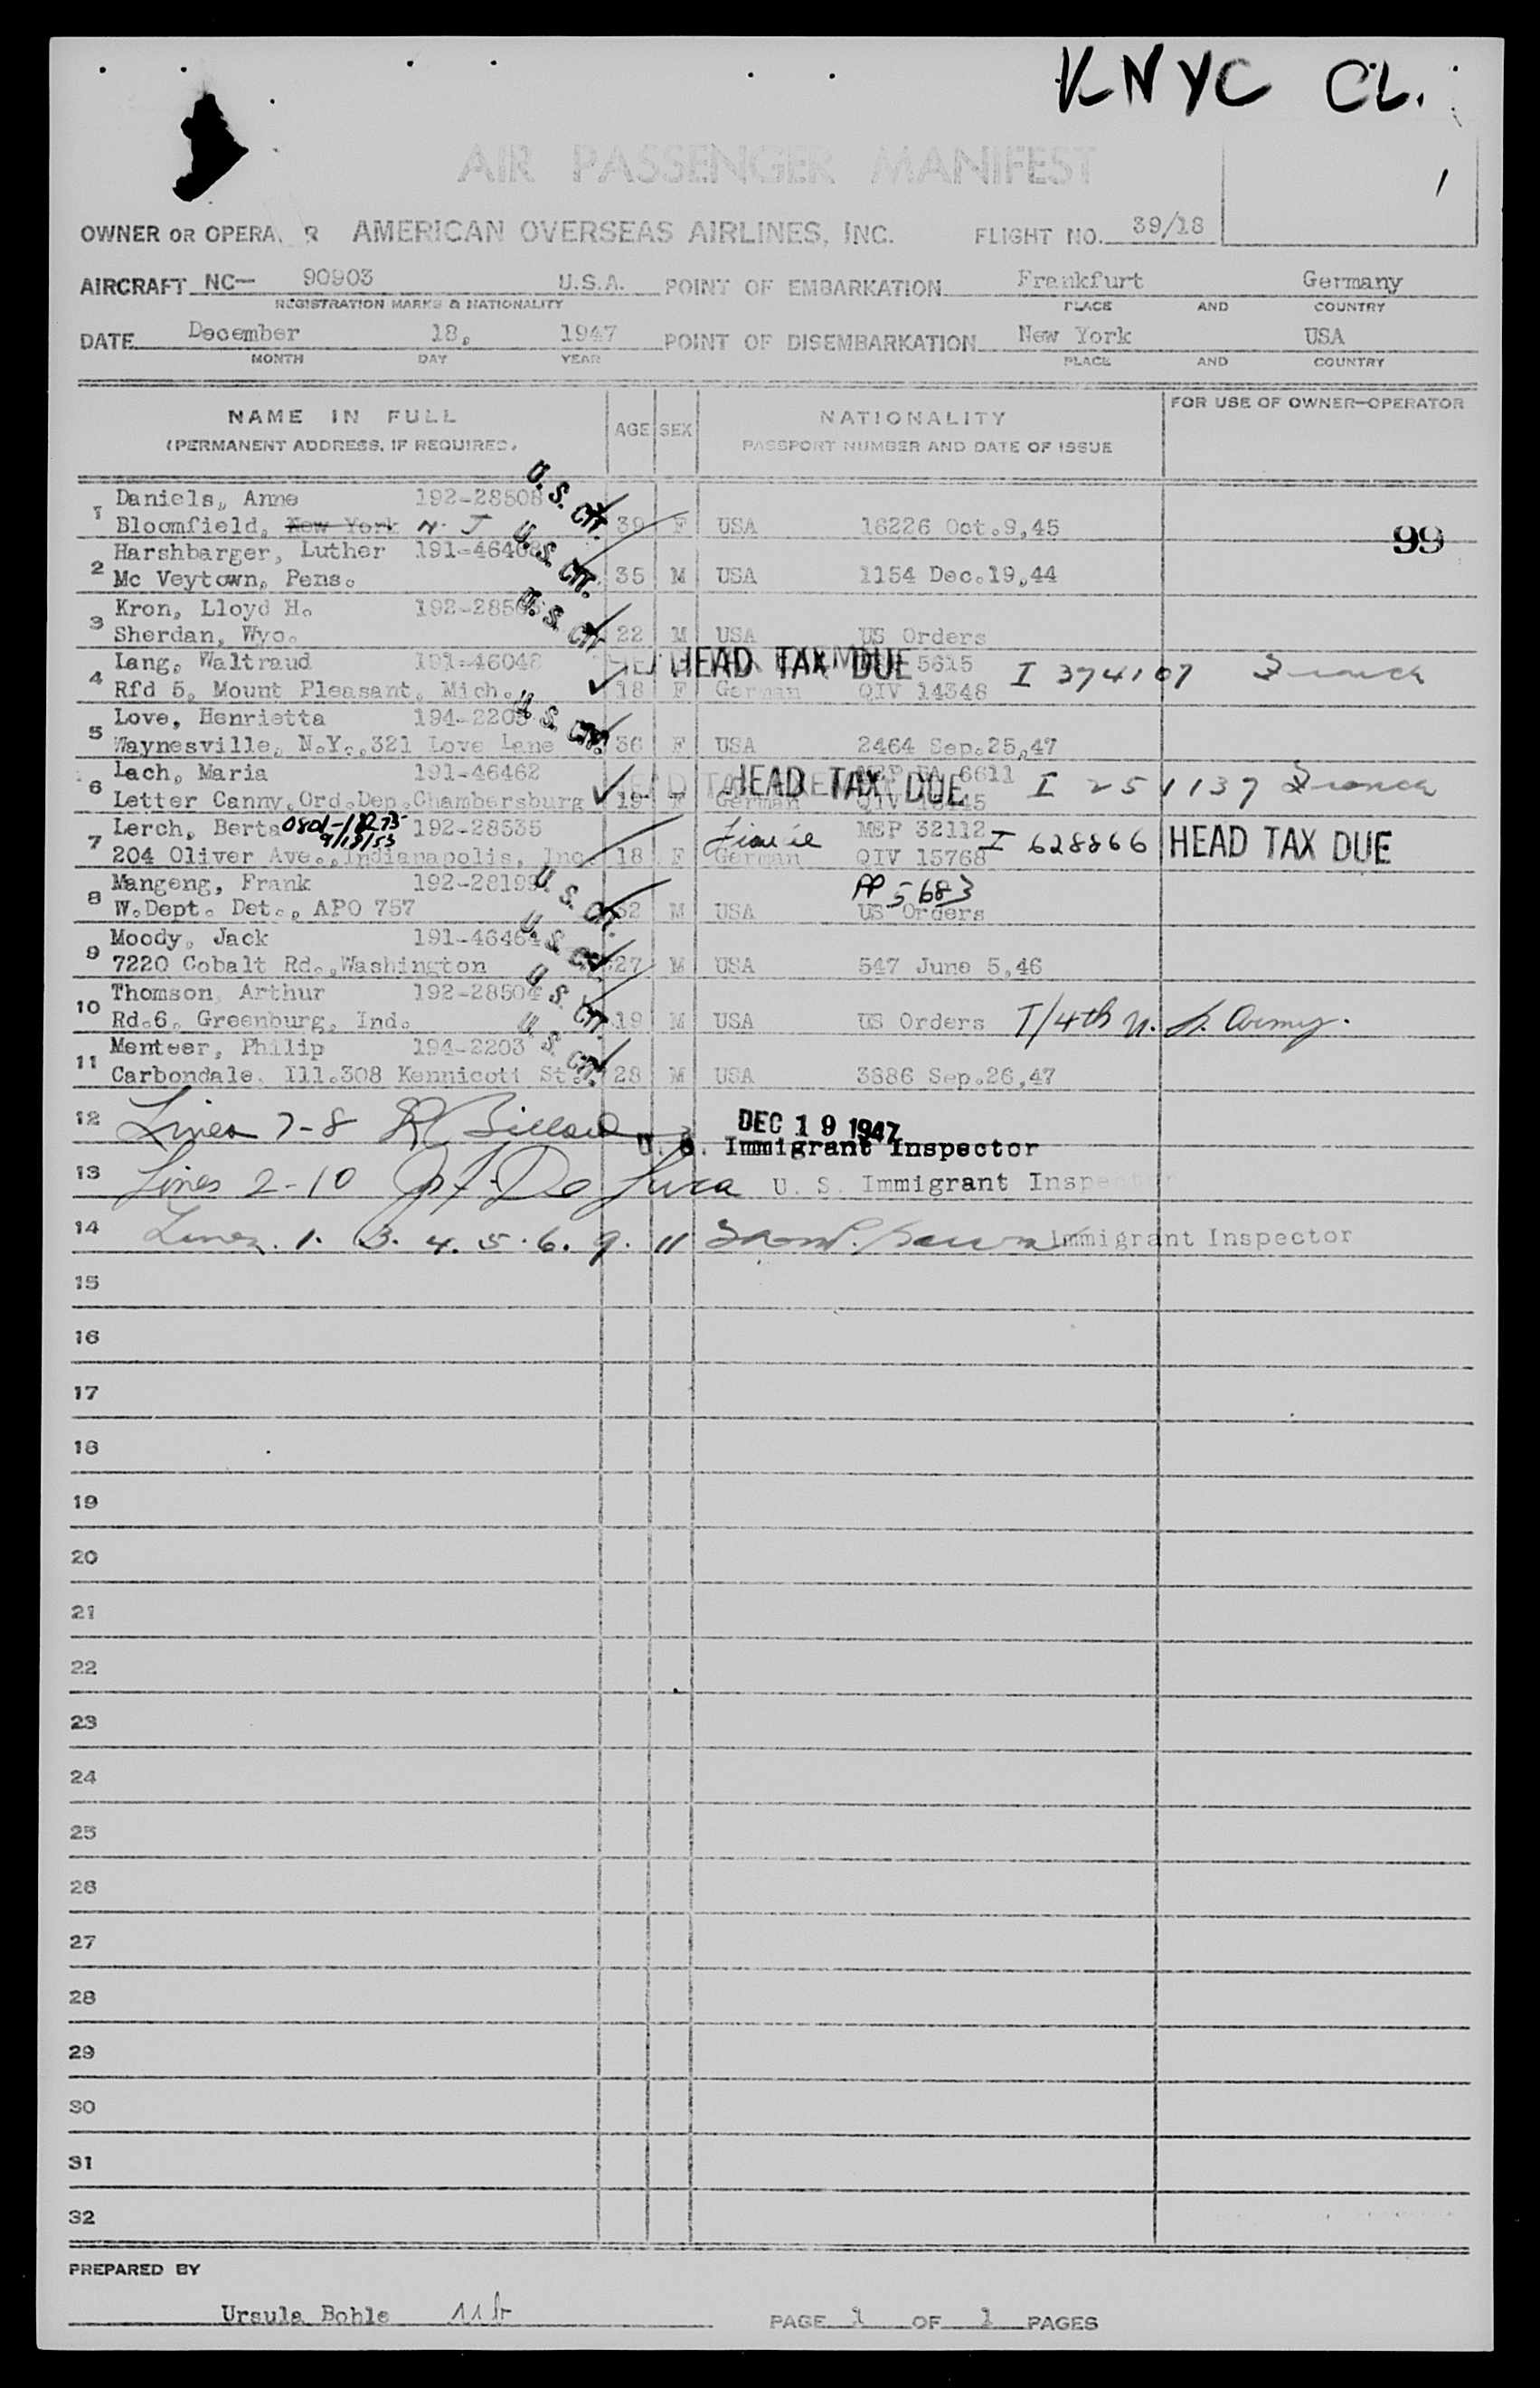 KNYC CL.
AIR PASSENGER MANIFEST
OWNER OR OPERA R AMERICAN OVERSEAS AIRLINES, INC. FLIGHT NO. 39/18
AIRCRAFT NC— 90903 U.S.A. POINT OF EMBARKATION Frankfurt Germany
REGISTRATION MARKS & NATIONALITY PLACE AND COUNTRY
DATE December 18, 1947 POINT OF DISEMBARKATION New York USA
MONTH DAY YEAR PLACE AND COUNTRY
NAME IN FULL AGE SEX NATIONALITY FOR USE OF OWNER—OPERATOR
(PERMANENT ADDRESS, IF REQUIRED. PASSPORT NUMBER AND DATE OF ISSUE
1 Daniels, Anne 192-28508 U.S. CIT.
Bloomfield, New York N. J 39 F USA 16226 Oct.9,45
99
2 Harshbarger, Luther 191-46408 U.S. CIT.
Mc Veytown, Pens. 35 M USA 1154 Dec.19,44
3 Kron, Lloyd H. 192-2850 U.S. CIT
Sherdan, Wyo. 22 M USA US Orders
4 Lang, Waltraud 191-46048 HEAD TAX DUE 5615 I 374107
Rfd 5, Mount Pleasant, Mich. 18 F German QIV 14348
5 Love, Henrietta 194-2205 U.S. CIT.
Waynesville, N.Y.,321 Love Lane 36 F USA 2464 Sep.25,47
6 Lach, Maria 191-46462 HEAD TAX DUE 6611 I 251137
Letter Canny,Ord.Dep.Chambersburg 19 F German QIV
7 Lerch, Berta 0801-18273 9/18/53 192-28535 MSP 32112 I 628866 HEAD TAX DUE
204 Oliver Ave.,Indianapolis, Inc. 18 F German QIV 15768
8 Mangeng, Frank 192-28199 U.S. CIT. PP 5683
W.Dept. Det., APO 757 32 M USA US Orders
9 Moody, Jack 191-46464 U.S. CIT.
7220 Cobalt Rd.,Washington 27 M USA 547 June 5,46
10 Thomson, Arthur 192-28504 U.S. CIT.
Rd.6, Greenburg, Ind. 19 M USA US Orders T/4th U. S. Army.
11 Menteer, Philip 194-2203 U.S. CIT.
Carbondale, Ill.308 Kennicott St. 28 M USA 3686 Sep.26,47
12 Lines 7-8 DEC 19 1947
U. S. Immigrant Inspector
13 Lines 2-10 De Luca U. S. Immigrant Inspector
14 Lines. 1. 3. 4. 5. 6. 9. 11 Immigrant Inspector
15
16
17
18
19
20
21
22
23
24
25
26
27
28
29
30
31
32
PREPARED BY
Ursula Bohle
PAGE 1 OF 1 PAGES